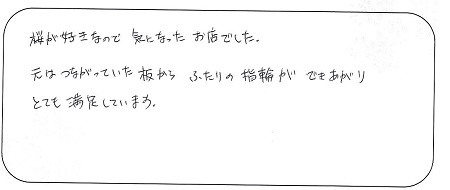 桜が好きなので 気になった お店でした。
元はつながっていた 板から ふたりの 指輪が できあがり
とても 満足しています。